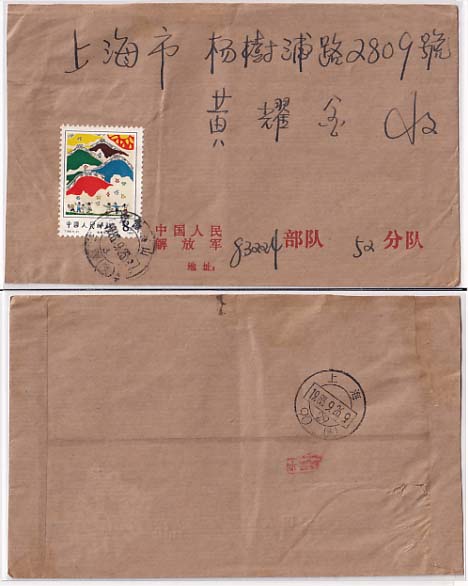 上海市 杨樹浦路2809號
黄耀金 收
中国人民邮政
8
中国人民
解放军 83224部队 52分队
地址:
上海